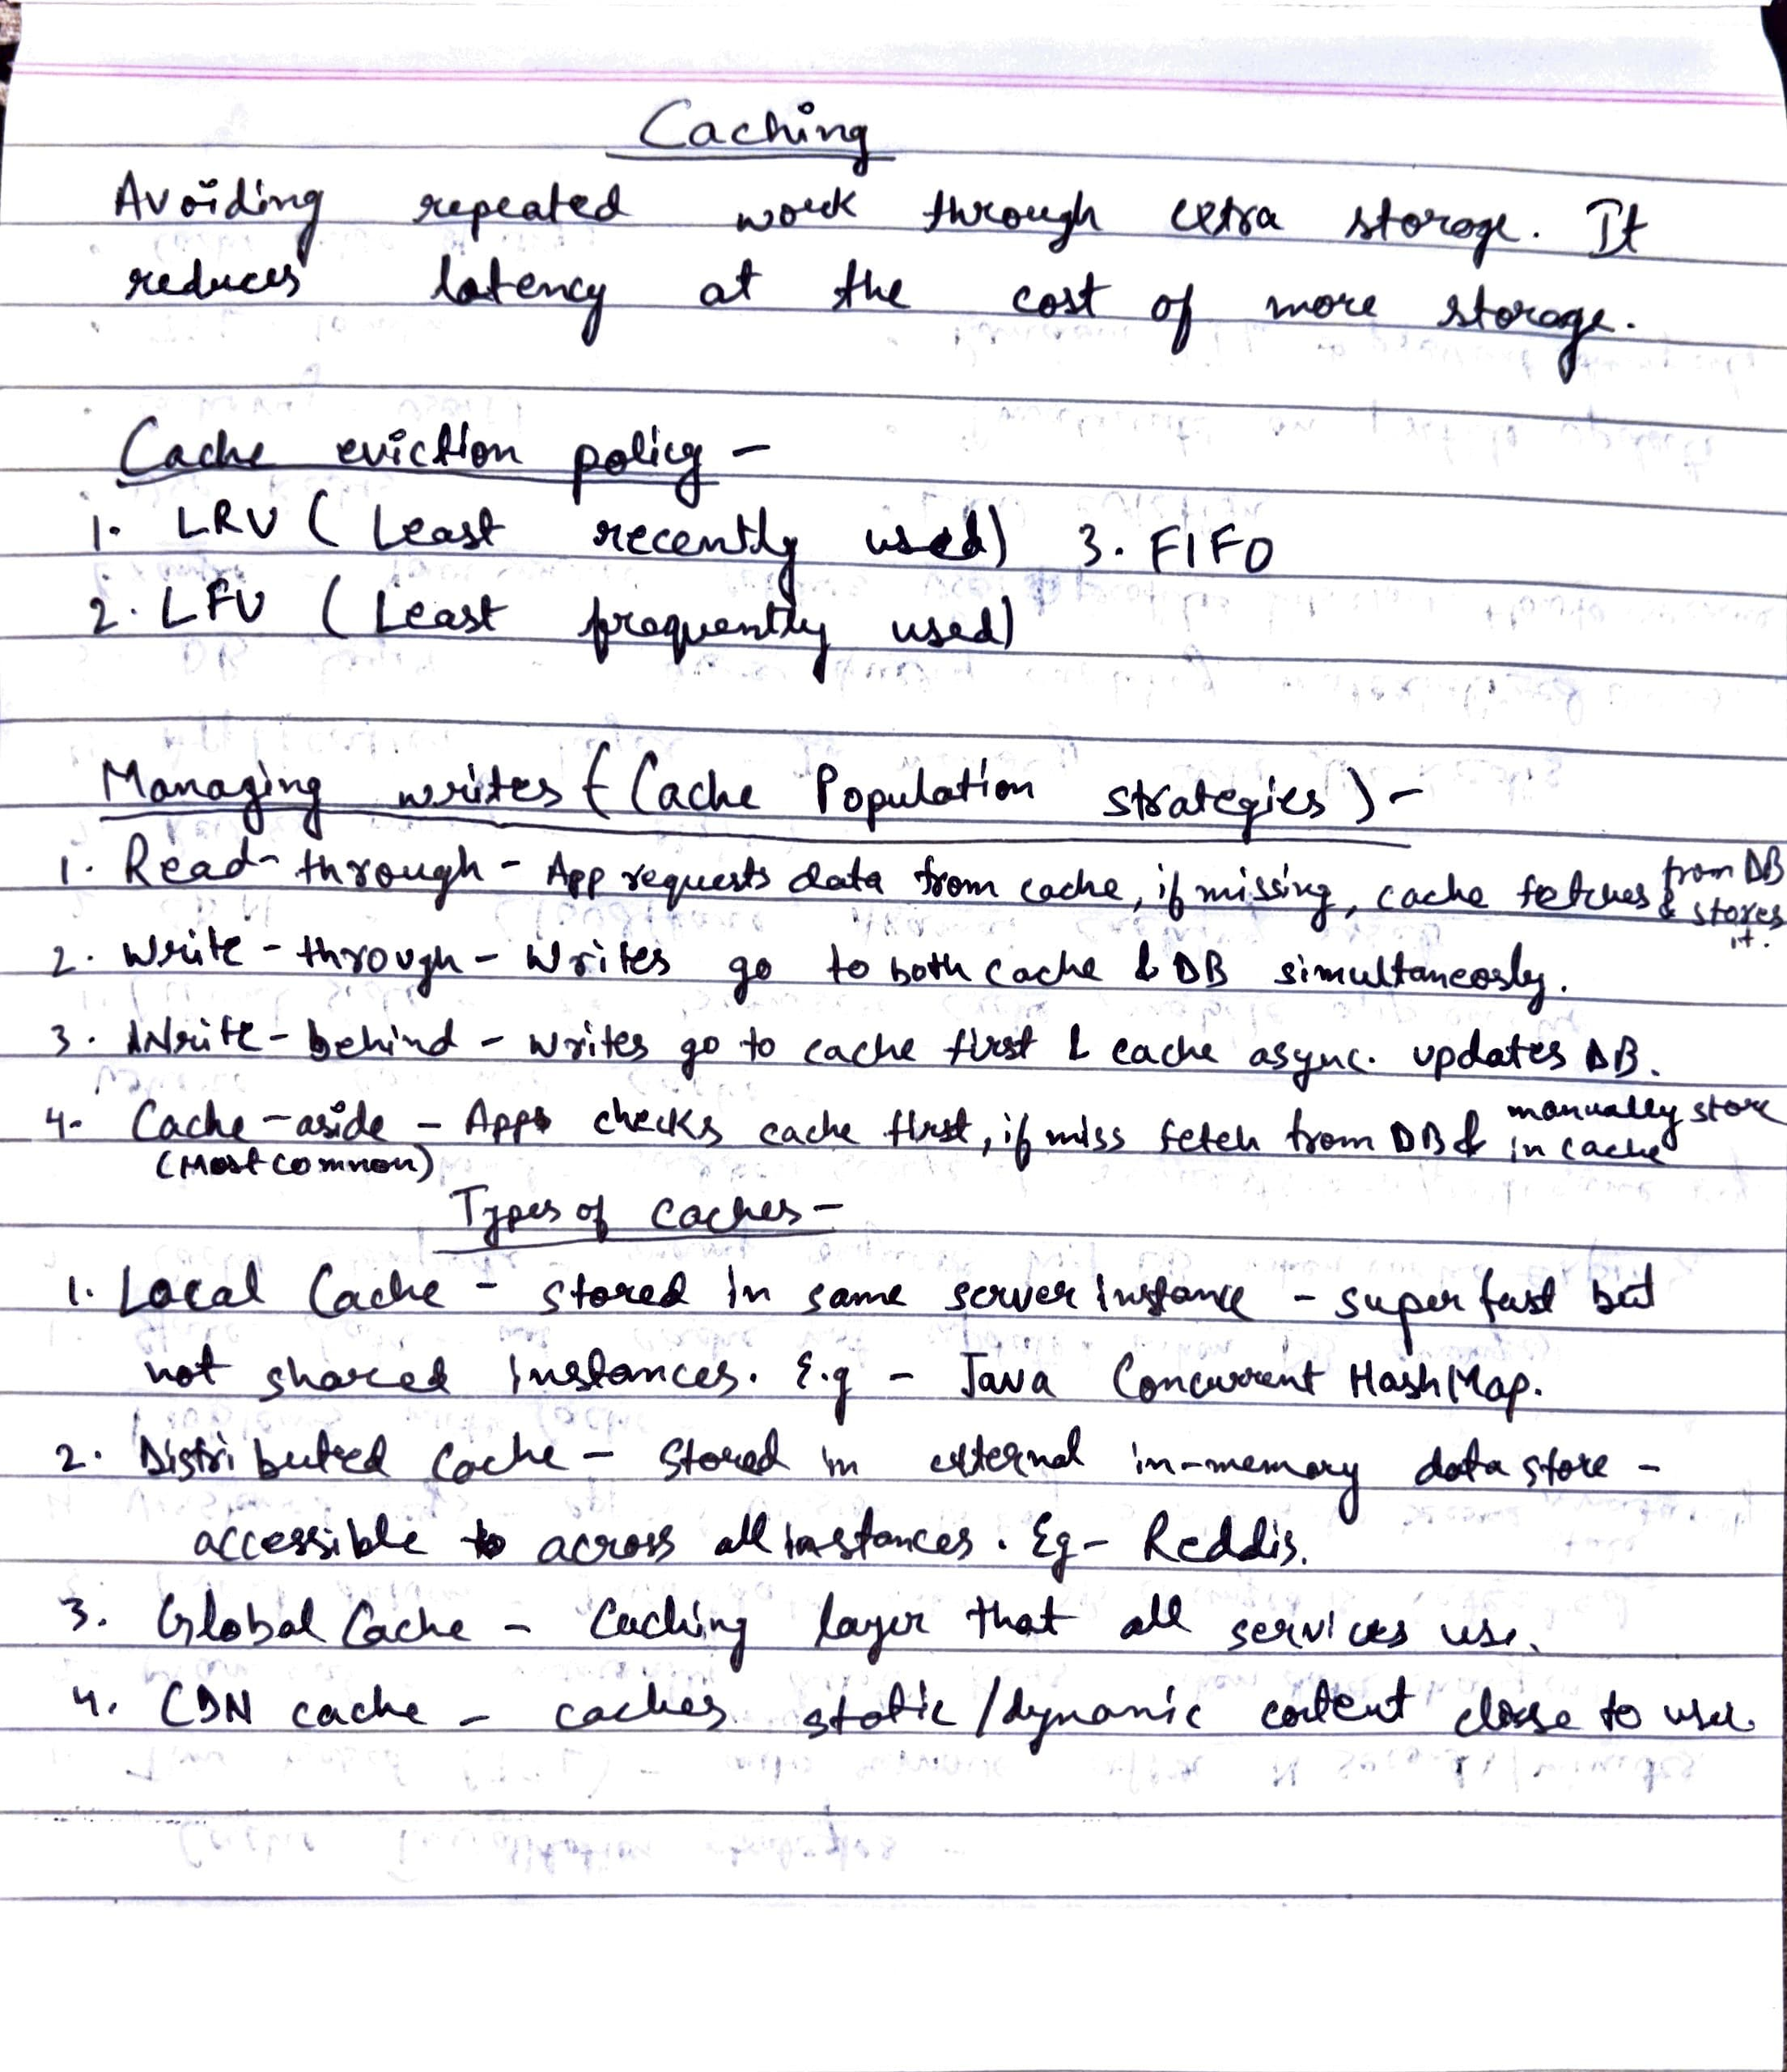 Caching
Avoiding repeated work through extra storage. It
reduces latency at the cost of more storage.
Cache eviction policy -
1. LRU ( Least recently used) 3. FIFO
2. LFU ( Least frequently used)
Managing writes ( Cache Population strategies ) -
1. Read-through - App requests data from cache, if missing, cache fetches from DB & stores it.
2. Write-through - Writes go to both cache & DB simultaneosly.
3. Write-behind - writes go to cache first & cache async. updates DB.
4. Cache-aside - App checks cache first, if miss fetch from DB & manually store in cache
(Most common)
Types of caches -
1. Local Cache - stored in same server instance - super fast but
not shared instances. E.g - Java Concurrent HashMap.
2. Distributed Cache - Stored in external in-memory data store -
accessible to across all instances. Eg - Reddis.
3. Global Cache - Caching layer that all services use.
4. CDN cache - caches static/dynamic content close to user.